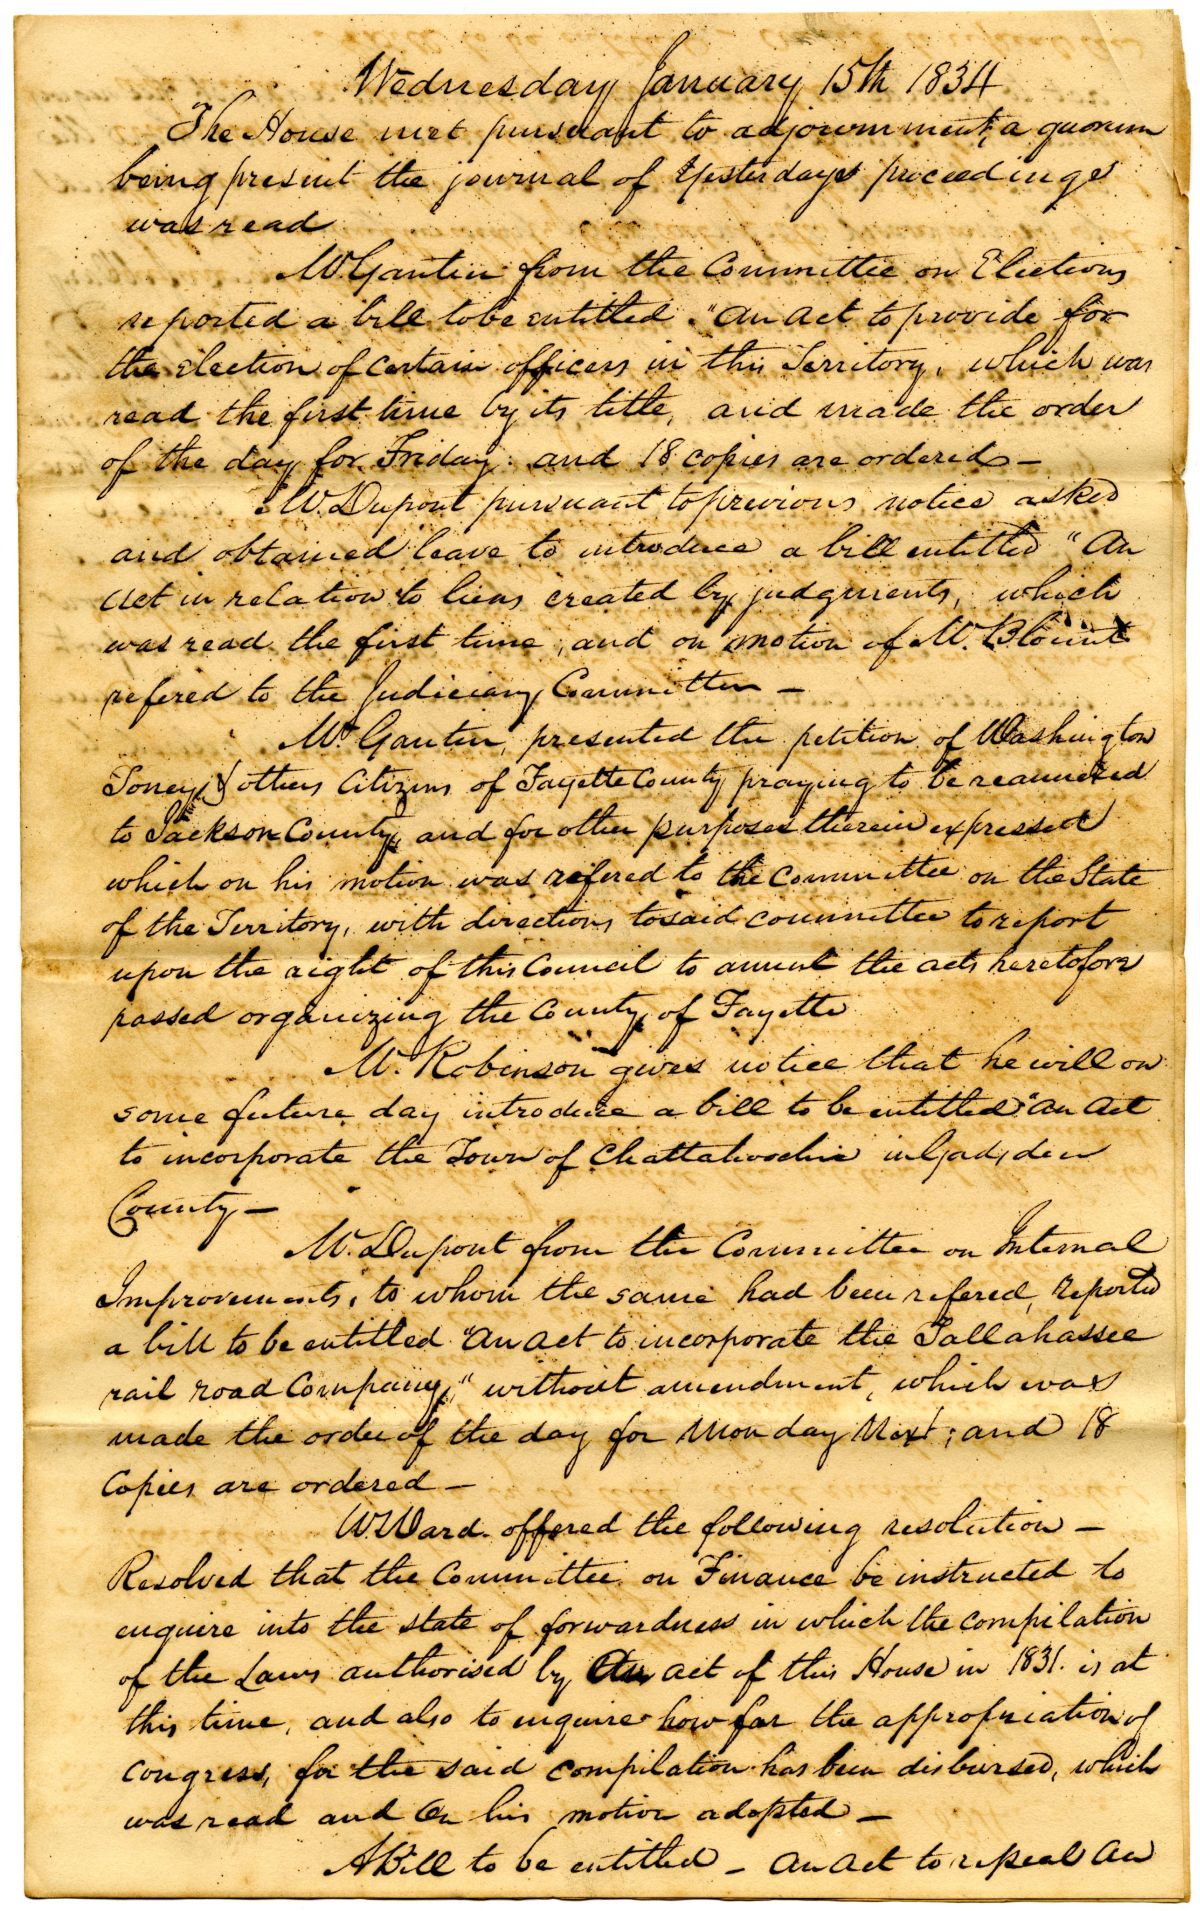 Wednesday January 15th 1834
The House met pursuant to adjournment, a quorum
being present the journal of Yesterdays proceedings
was read
Mr Gautier from the Committee on Elections
reported a bill to be entitled "An Act to provide for
the election of certain officers in this Territory, which was
read the first time by its title, and made the order
of the day for Friday. and 18 copies are ordered —
Mr. Dupont pursuant to previous notice asked
and obtained leave to introduce a bill entitled "An
Act in relation to liens created by judgments, which
was read the first time, and on motion of Mr. Blount
refered to the Judiciary Committee —
Mr. Gautier, presented the petition of Washington
Toney & others Citizens of Fayette County praying to be reannexed
to Jackson County, and for other purposes therein expressed
which on his motion was refered to the Committee on the State
of the Territory, with directions to said committee to report
upon the right of this Council to annul the acts heretofore
passed organizing the County of Fayette
Mr. Robinson gives notice that he will on
some future day introduce a bill to be entitled "An Act
to incorporate the Town of Chattahoochie in Gadsden
County —
Mr. Dupont from the Committee on Internal
Improvements, to whom the same had been refered, reported
a bill to be entitled "An Act to incorporate the Tallahassee
rail road Company," without amendment, which was
made the order of the day for Monday Next; and 18
Copies are ordered —
Mr Ward offered the following resolution —
Resolved that the Committee on Finance be instructed to
enquire into the state of forwardness in which the compilation
of the Laws authorised by An act of this House in 1831. is at
this time, and also to enquire how far the appropriation of
Congress, for the said compilation has been disbursed, which
was read and On his motion adopted —
A Bill to be entitled — An Act to repeal An